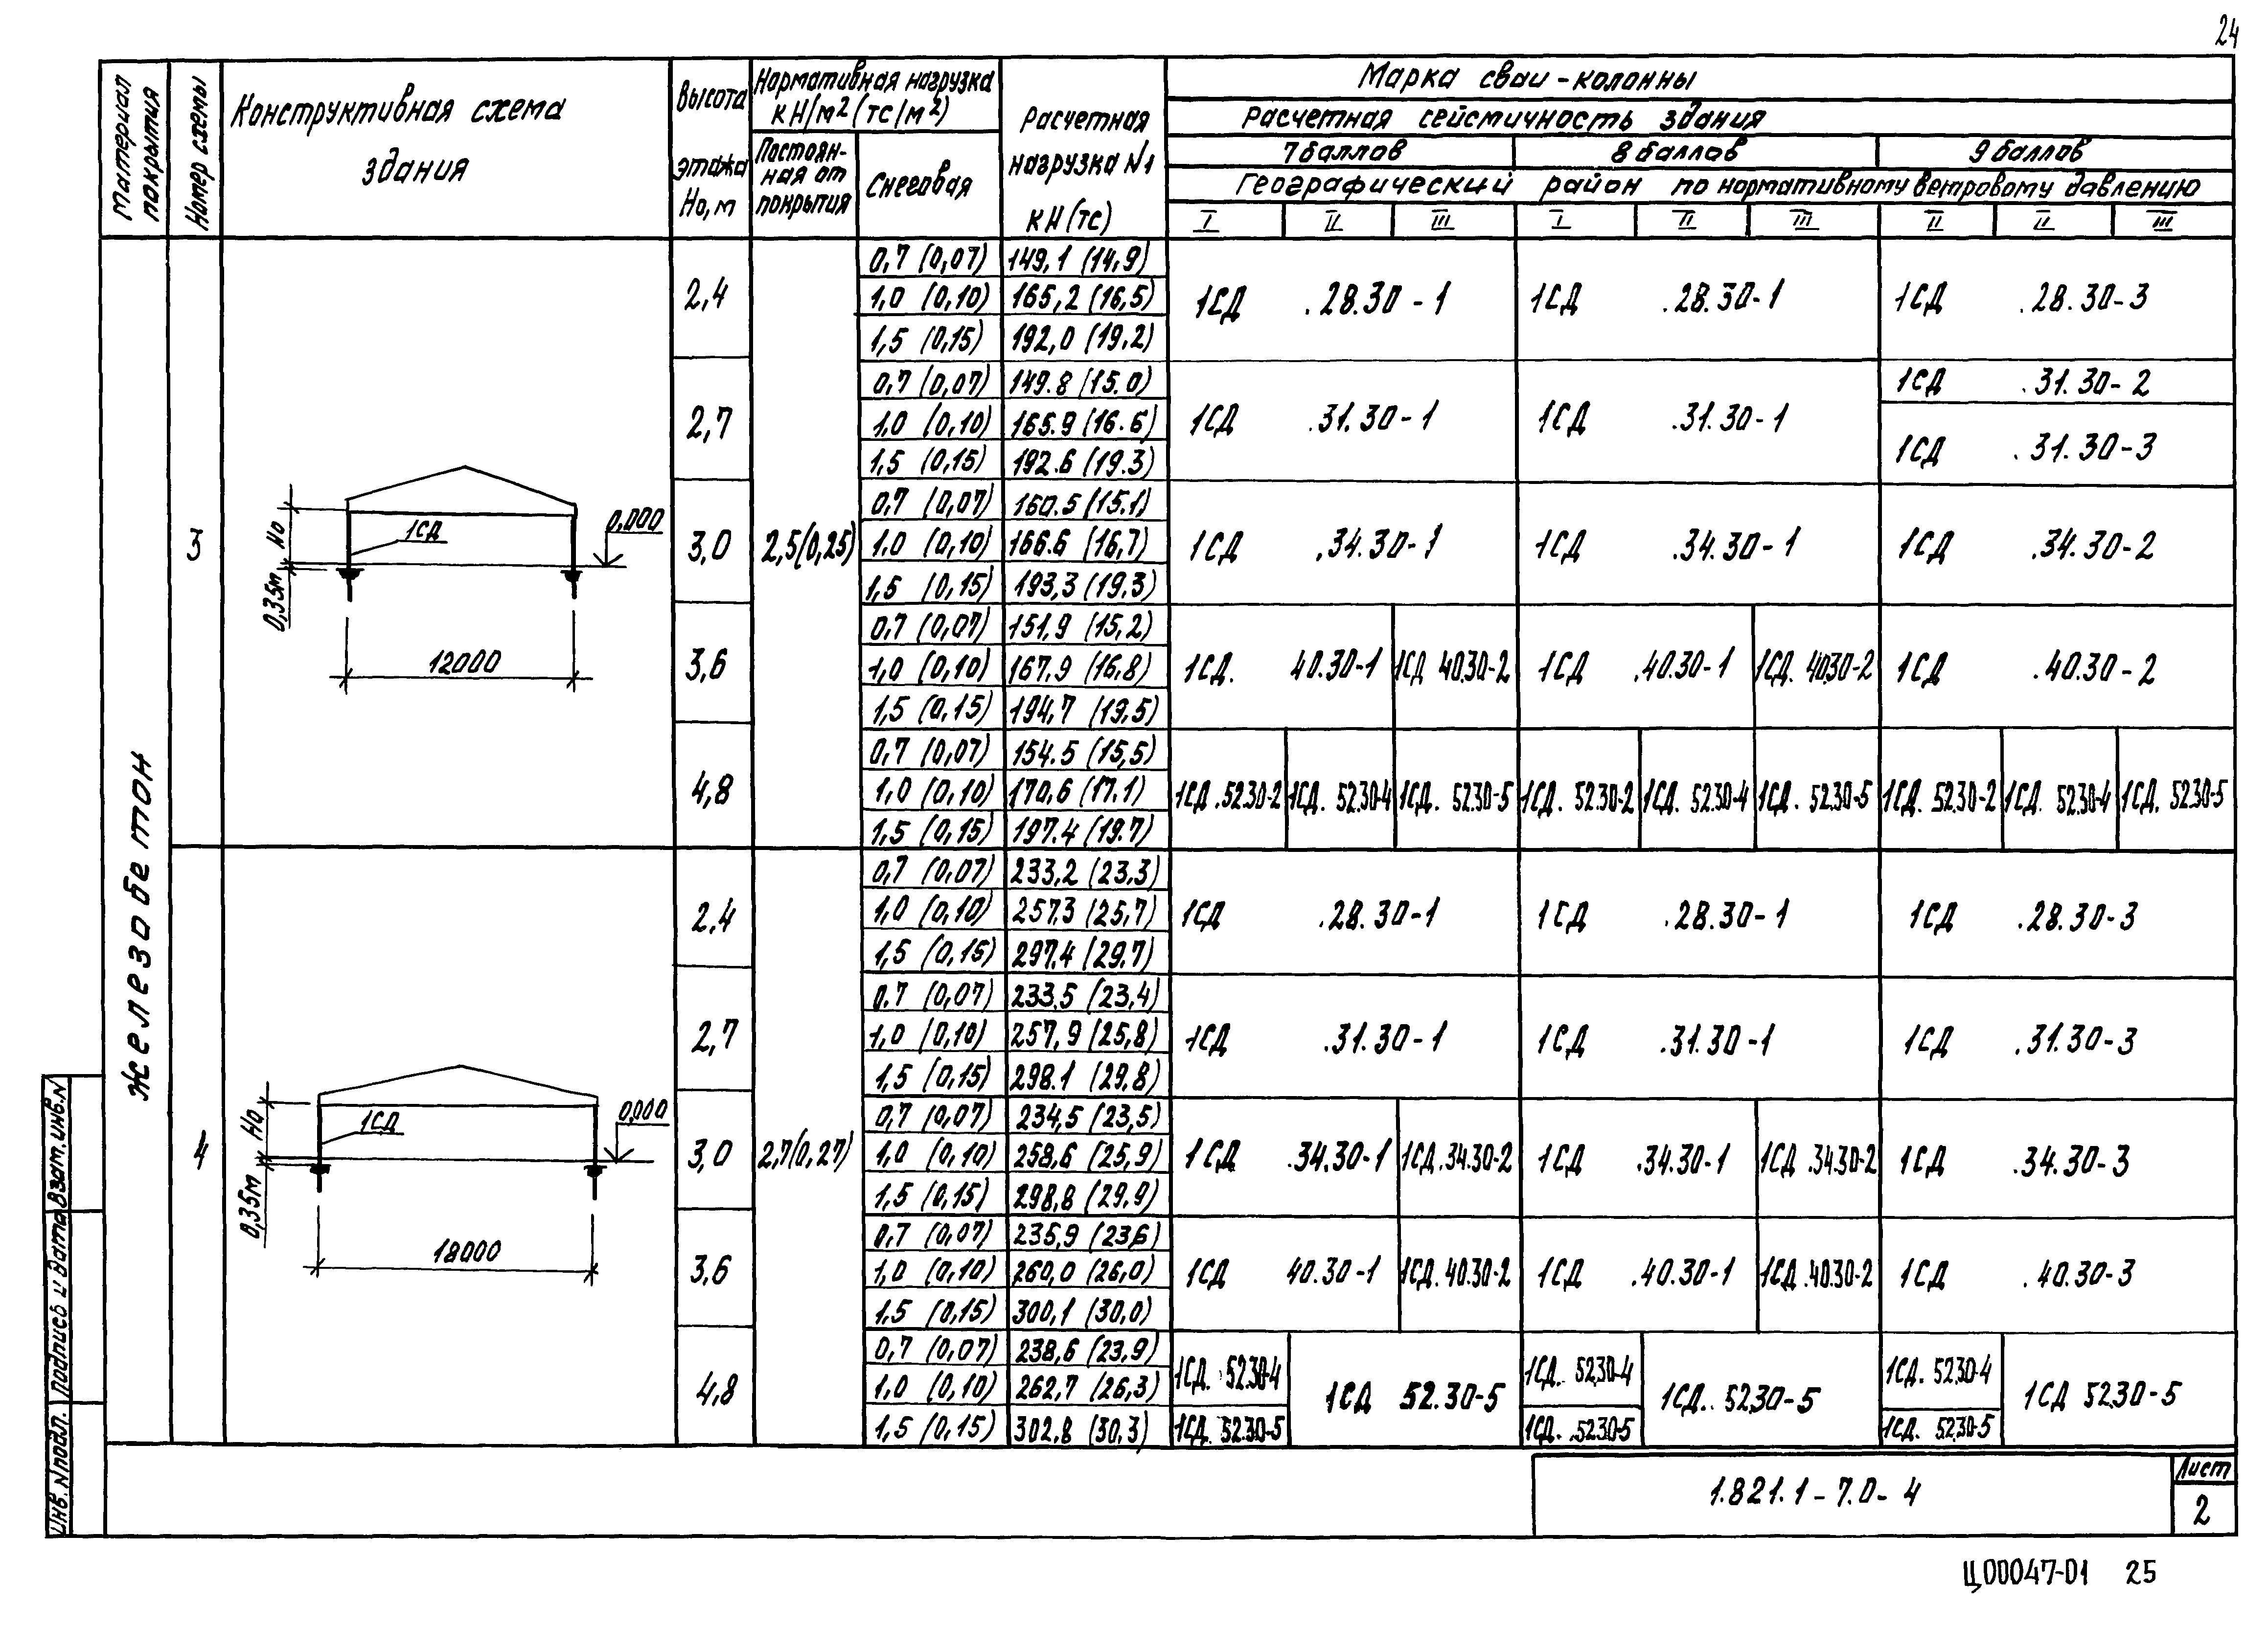 24
Материал покрытия
Номер схемы
Конструктивная схема
здания
Высота
этажа
Но, м
Нормативная нагрузка
кН/м2 (тс/м2)
Постоян-
ная от
покрытия
Снеговая
Расчетная
нагрузка N1
кН (тс)
Марка сваи-колонны
Расчетная сейсмичность здания
7 баллов 8 баллов 9 баллов
Географический район по нормативному ветровому давлению
I II III I II III II II III
Железобетон
3
1СД
0,000
Но
0,35м
12000
2,5(0,25)
2,4
0,7 (0,07) 149,1 (14,9)
1,0 (0,10) 165,2 (16,5)
1,5 (0,15) 192,0 (19,2)
1СД .28.30-1 1СД .28.30-1 1СД .28.30-3
2,7
0,7 (0,07) 149.8 (15.0)
1,0 (0,10) 165.9 (16.6)
1,5 (0,15) 192.6 (19.3)
1СД .31.30-1 1СД .31.30-1 1СД .31.30-2
1СД .31.30-3
3,0
0,7 (0,07) 160.5 (15.1)
1,0 (0,10) 166.6 (16,7)
1,5 (0,15) 193,3 (19,3)
1СД .34.30-1 1СД .34.30-1 1СД .34.30-2
3,6
0,7 (0,07) 151,9 (15,2)
1,0 (0,10) 167,9 (16,8)
1,5 (0,15) 194,7 (19,5)
1СД. 40.30-1 1СД 40.30-2 1СД .40.30-1 1СД. 40.30-2 1СД .40.30-2
4,8
0,7 (0,07) 154.5 (15,5)
1,0 (0,10) 170,6 (17.1)
1,5 (0,15) 197.4 (19.7)
1СД .52.30-2 1СД. 52.30-4 1СД. 52.30-5 1СД. 52.30-2 1СД. 52.30-4 1СД. 52.30-5 1СД. 52.30-2 1СД. 52.30-4 1СД. 52.30-5
4
1СД
0,000
Но
0,35м
18000
2,7(0,27)
2,4
0,7 (0,07) 233,2 (23,3)
1,0 (0,10) 257,3 (25,7)
1,5 (0,15) 297,4 (29,7)
1СД .28.30-1 1СД .28.30-1 1СД .28.30-3
2,7
0,7 (0,07) 233,5 (23,4)
1,0 (0,10) 257,9 (25,8)
1,5 (0,15) 298.1 (29,8)
1СД .31.30-1 1СД .31.30-1 1СД .31.30-3
3,0
0,7 (0,07) 234,5 (23,5)
1,0 (0,10) 258,6 (25,9)
1,5 (0,15) 298,8 (29,9)
1СД .34.30-1 1СД .34.30-2 1СД .34.30-1 1СД .34.30-2 1СД .34.30-3
3,6
0,7 (0,07) 235,9 (23,6)
1,0 (0,10) 260,0 (26,0)
1,5 (0,15) 300,1 (30,0)
1СД 40.30-1 1СД. 40.30-2 1СД .40.30-1 1СД .40.30-2 1СД .40.30-3
4,8
0,7 (0,07) 238,6 (23,9)
1,0 (0,10) 262,7 (26,3)
1,5 (0,15) 302,8 (30,3)
1СД. 52.30-4 1СД 52.30-5 1СД. 52.30-4 1СД. 52.30-5 1СД. 52.30-4 1СД 52.30-5
1СД. 52.30-5 1СД. 52.30-5 1СД. 52.30-5
Инв. N подл. Подпись и дата Взам. инв. N
1.821.1-7.0-4
Лист
2
Ц00047-01 25